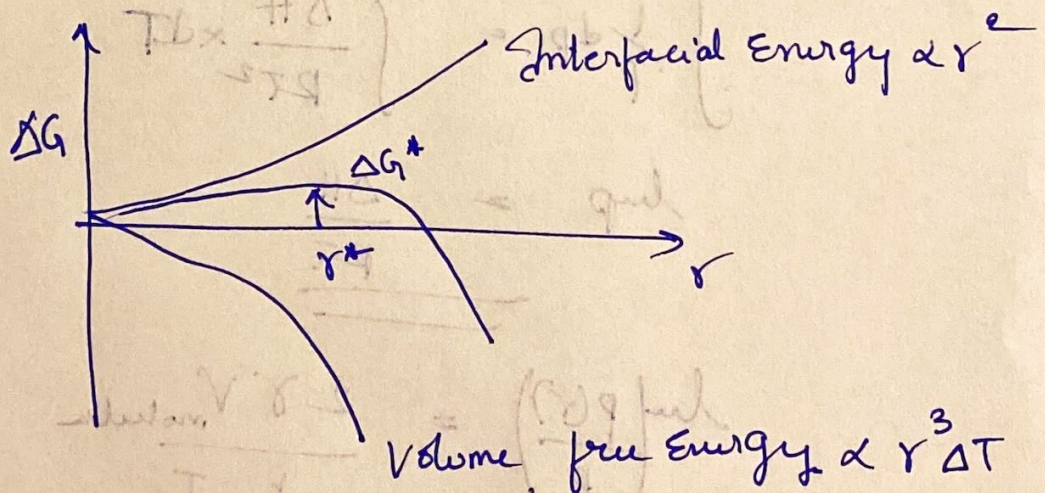 Interfacial Energy ∝ r²
ΔG
ΔG*
r*
r
Volume free Energy ∝ r³ΔT